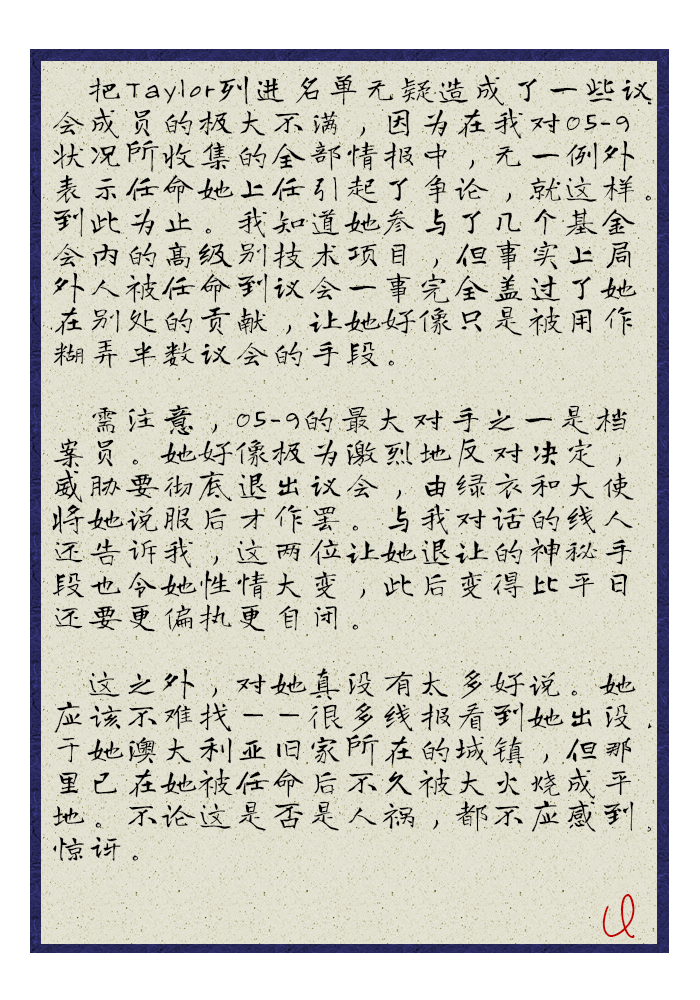 把Taylor列进名单无疑造成了一些议
会成员的极大不满，因为在我对05-9
状况所收集的全部情报中，无一例外
表示任命她上任引起了争论，就这样。
到此为止。我知道她参与了几个基金
会内的高级别技术项目，但事实上局
外人被任命到议会一事完全盖过了她
在别处的贡献，让她好像只是被用作
糊弄半数议会的手段。
需注意，05-9的最大对手之一是档
案员。她好像极为激烈地反对决定，
威胁要彻底退出议会，由绿衣和大使
将她说服后才作罢。与我对话的线人
还告诉我，这两位让她退让的神秘手
段也令她性情大变，此后变得比平日
还要更偏执更自闭。
这之外，对她真没有太多好说。她
应该不难找——很多线报看到她出没
于她澳大利亚旧家所在的城镇，但那
里已在她被任命后不久被大火烧成平
地。不论这是否是人祸，都不应感到
惊讶。